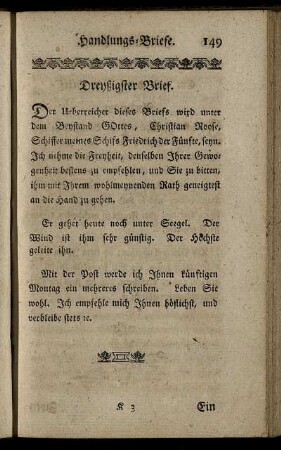 Handlungs-Briefe. 149
Dreyßigster Brief.
Der Ueberreicher dieses Briefs wird unter
dem Beystand GOttes, Christian Roose,
Schiffer meines Schifs Friedrich der Fünfte, seyn.
Ich nehme die Freyheit, denselben Ihrer Gewo-
genheit bestens zu empfehlen, und Sie zu bitten,
ihm mit Ihrem wohlmeynenden Rath geneigtest
an die Hand zu gehen.
Er gehet heute noch unter Seegel. Der
Wind ist ihm sehr günstig. Der Höchste
geleite ihn.
Mit der Post werde ich Ihnen künftigen
Montag ein mehreres schreiben. Leben Sie
wohl. Ich empfehle mich Ihnen höflichst, und
verbleibe stets ꝛc.
K 3 Ein